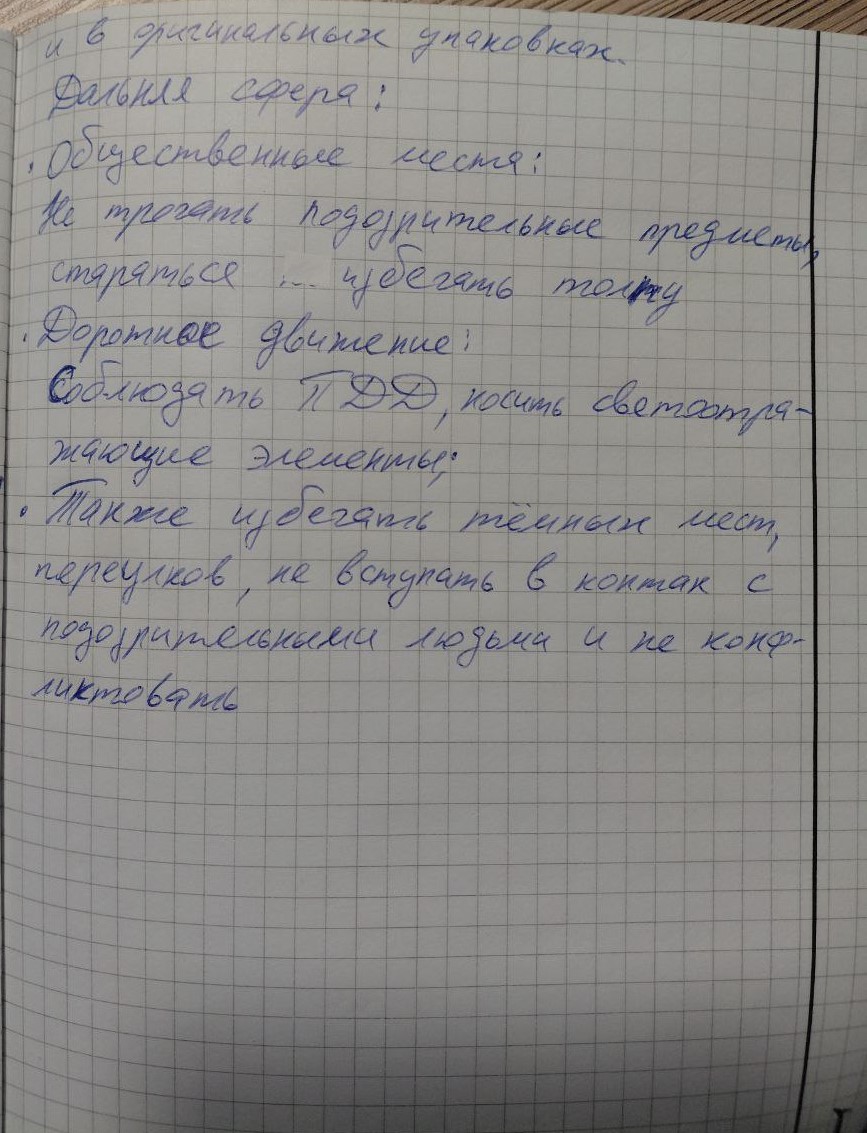 и в оригинальных упаковках.
Дальняя сфера:
· Общественные места:
Не трогать подозрительные предметы,
стараться ... избегать толпу
· Дорожное движение:
Соблюдать ПДД, носить светоотра-
жающие элементы;
· Также избегать тёмных мест,
переулков, не вступать в контак с
подозрительными людьми и не конф-
ликтовать